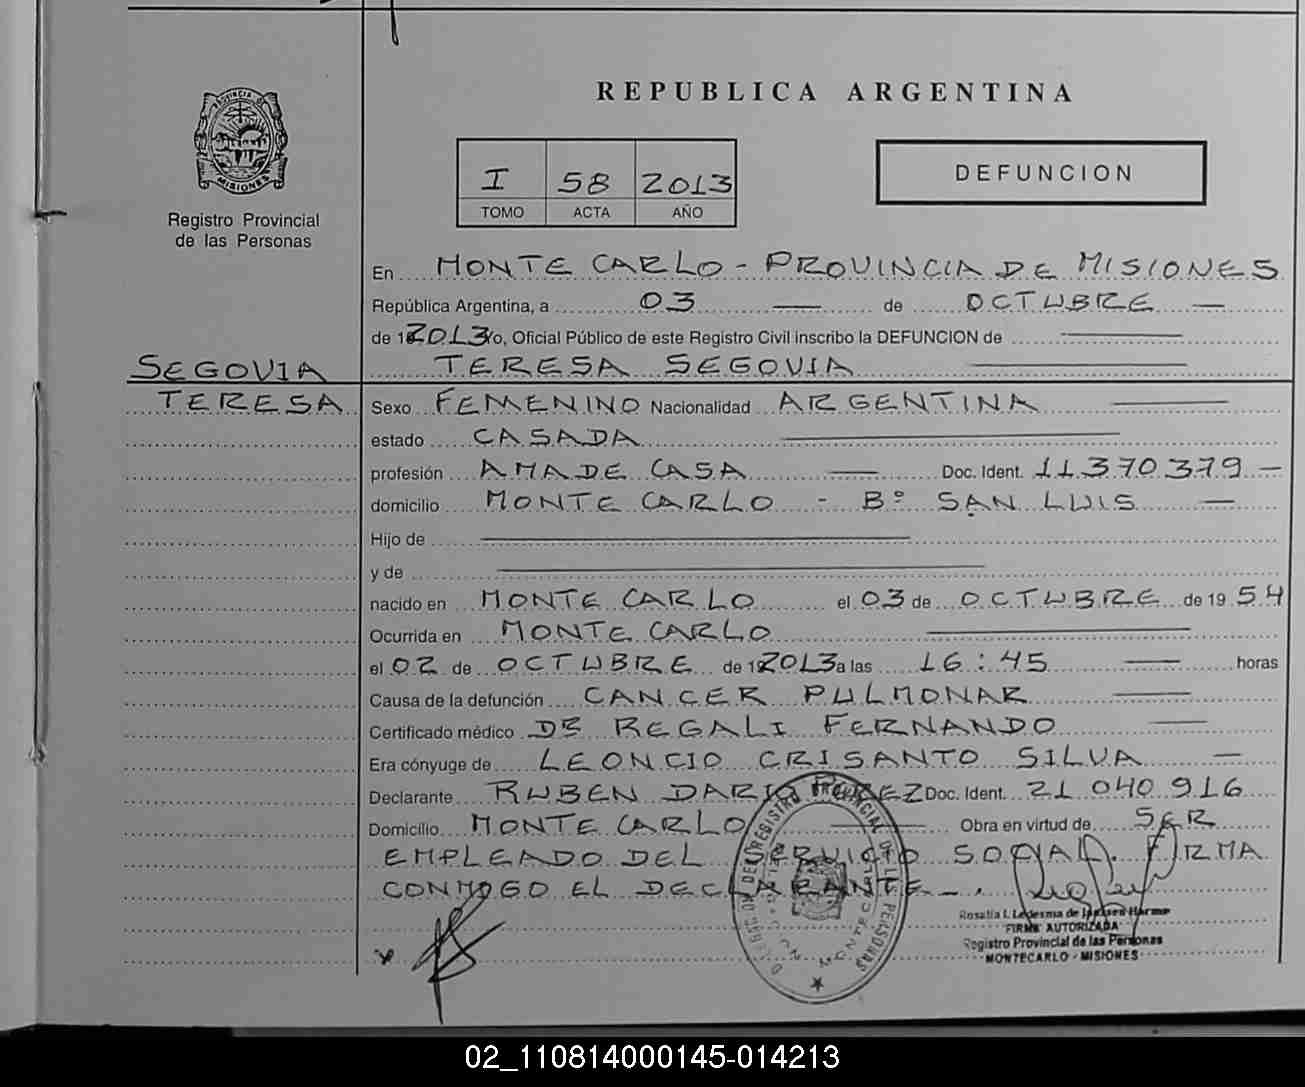 REPUBLICA ARGENTINA
PROVINCIA DE
MISIONES
Registro Provincial
de las Personas
I 58 2013
TOMO ACTA AÑO
DEFUNCION
En MONTE CARLO - PROVINCIA DE MISIONES
República Argentina, a 03 — de OCTUBRE —
de 12013 Yo, Oficial Público de este Registro Civil inscribo la DEFUNCION de —
SEGOVIA TERESA SEGOVIA —
TERESA Sexo FEMENINO Nacionalidad ARGENTINA —
estado CASADA —
profesión AMA DE CASA — Doc. Ident. 11370379 —
domicilio MONTE CARLO - Bº SAN LUIS —
Hijo de —
y de —
nacido en MONTE CARLO el 03 de OCTUBRE de 1954
Ocurrida en MONTE CARLO —
el 02 de OCTUBRE de 12013 a las 16:45 — horas
Causa de la defunción CANCER PULMONAR —
Certificado médico DR REGALI FERNANDO —
Era cónyuge de LEONCIO CRISANTO SILVA —
Declarante RUBEN DARIO PEREZ Doc. Ident. 21 040 916
Domicilio MONTE CARLO — Obra en virtud de SER
EMPLEADO DEL SERVICIO SOCIAL. FIRMA
CONMIGO EL DECLARANTE -.
DELEGACION DEL REGISTRO PROVINCIAL DE LAS PERSONAS
MONTECARLO
Rosalia I. Ledesma de
FIRMA AUTORIZADA
Registro Provincial de las Personas
MONTECARLO - MISIONES
02_110814000145-014213